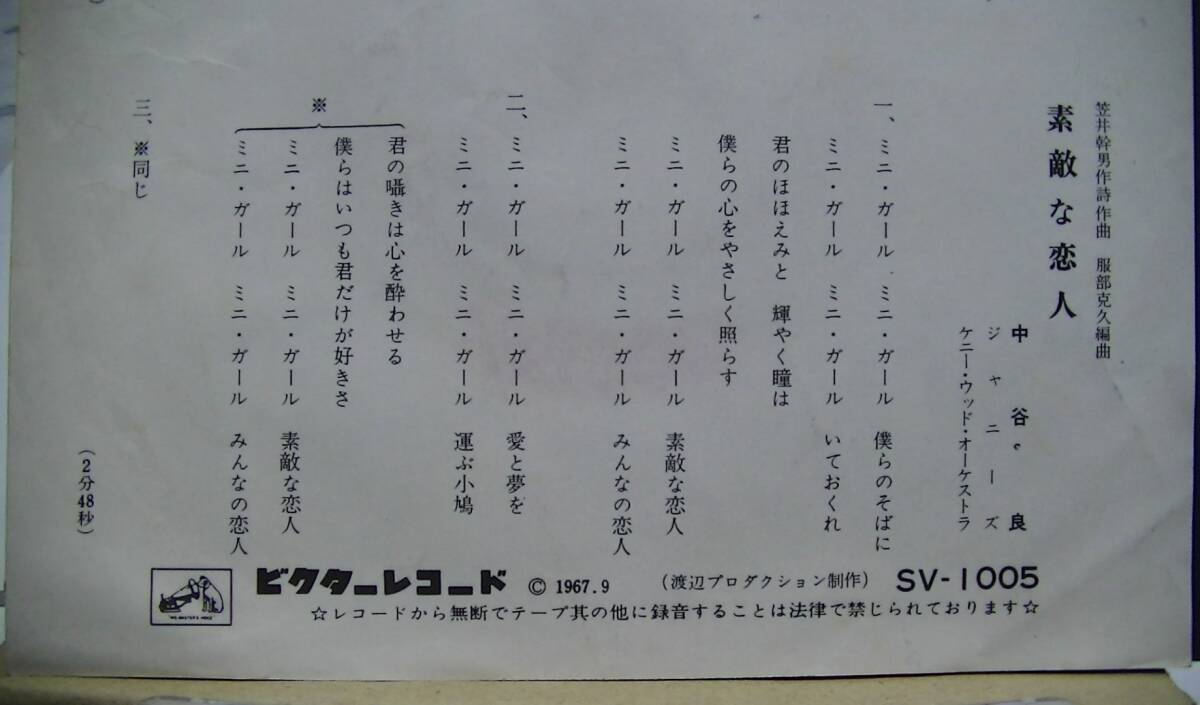 笠井幹男作詩作曲　服部克久編曲
素敵な恋人
中谷　良
ジャニーズ
ケニー・ウッド・オーケストラ
一、ミニ・ガール　ミニ・ガール　僕らのそばに
ミニ・ガール　ミニ・ガール　いておくれ
君のほほえみと　輝やく瞳は
僕らの心をやさしく照らす
ミニ・ガール　ミニ・ガール　素敵な恋人
ミニ・ガール　ミニ・ガール　みんなの恋人
二、ミニ・ガール　ミニ・ガール　愛と夢を
ミニ・ガール　ミニ・ガール　運ぶ小鳩
※
君の囁きは心を酔わせる
僕らはいつも君だけが好きさ
ミニ・ガール　ミニ・ガール　素敵な恋人
ミニ・ガール　ミニ・ガール　みんなの恋人
三、※同じ
（2分48秒）
"HIS MASTER'S VOICE"
ビクターレコード　© 1967.9　（渡辺プロダクション制作）　SV-1005
☆レコードから無断でテープ其の他に録音することは法律で禁じられております☆